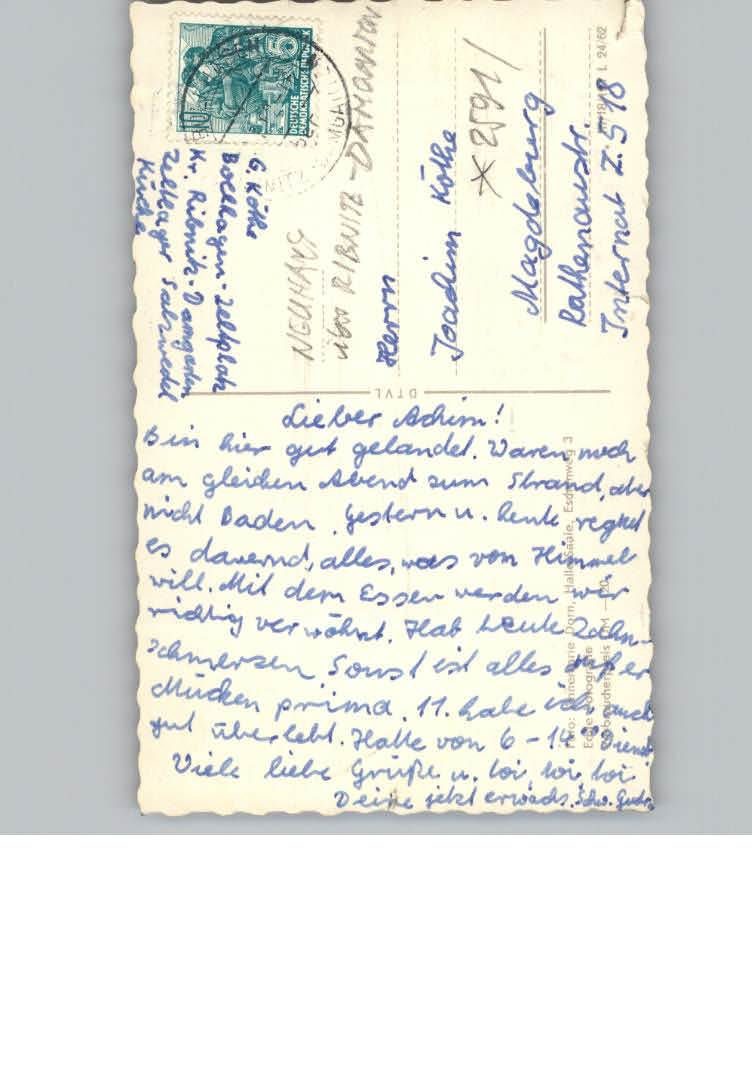 Lieber Achim!
Bin hier gut gelandet. Waren noch
am gleichen Abend zum Strand, aber
nicht Baden. Gestern u. heute regnet
es dauernd, alles, was vom Himmel
will. Mit dem Essen werden wir
richtig verwöhnt. Hab heute Zahn-
schmerzen. Sonst ist alles außer
Mücken prima. 11. habe ich auch
gut überlebt. Hatte von 6-14 Dienst
Viele liebe Grüße u. toi, toi, toi
Deine jetzt erwachs. Schw.
DTVL
G. Köthe
Boelhagen-Zeltplatz
Kr. Ribnitz-Damgarten
Zeltlager Salzwedel
Küche
DEUTSCHE
DEMOKRATISCHE REPUBLIK
5
NEUHAUS
über RIBNITZ-DAMGARTEN
Herrn
Joachim Köthe
* 2591/
Magdeburg
Rathenaustr.
Internat Z. 518
L 24/62
Foto: Annemarie Dorn, Halle/Saale, Eschenweg 3
Echte Fotografie
Verbraucherpreis DM —,20